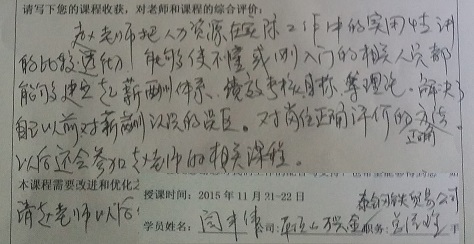 请写下您的课程收获，对老师和课程的综合评价:
赵老师把人力资源在实际工作中的实用性讲
的比较透彻，能够使不懂或刚入门的相关人员都
能够建立起薪酬体系、绩效考核目标、等理论。解决了
自己以前对薪酬认识的误区。对岗位正确评价的方法
以后还会参加赵老师的相关课程。
本课程需要改进和优化之
请赵老师以后
授课时间：2015年11月21-22日
贸易公司
学员姓名： 司: 职务: 总经理